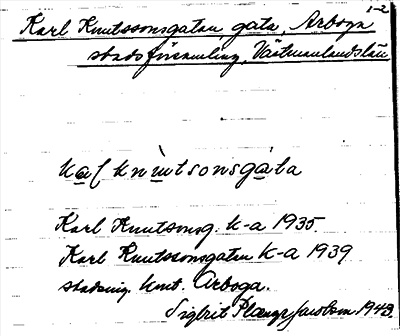 1-2
Karl Knutssonsgatan, gata, Arboga
stadsförsamling, Västmanlands län
ka̲l knù̲tsonsga̲ta
Karl Knutssonsg. k-a 1935.
Karl Knutssonsgatan k-a 1939
stadsing. kont. Arboga.
Sigbrit Plænge Jacobson. 1943.